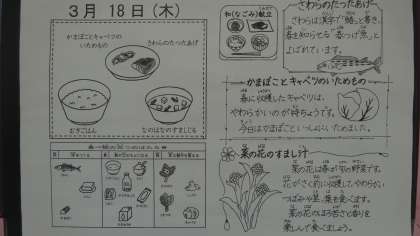 3月 18日(木)
かまぼことキャベツの
いためもの
さわらのたつたあげ
むぎごはん
なのはなのすましじる
和(なごみ)献立
さわらのたつたあげ
さわらは漢字で「鰆」と書き、
春を知らせる「春つげ魚」と
よばれています。
かまぼことキャベツのいためもの
春に収穫したキャベツは、
やわらかいのが特ちょうです。
今日はかまぼこといっしょにいためました。
菜の花のすまし汁
菜の花は春が旬の野菜です。
花がさく前に収穫して、やわらかい
つぼみや茎、葉を食べます。
菜の花のほろ苦さと香りを
楽しんで食べましょう。